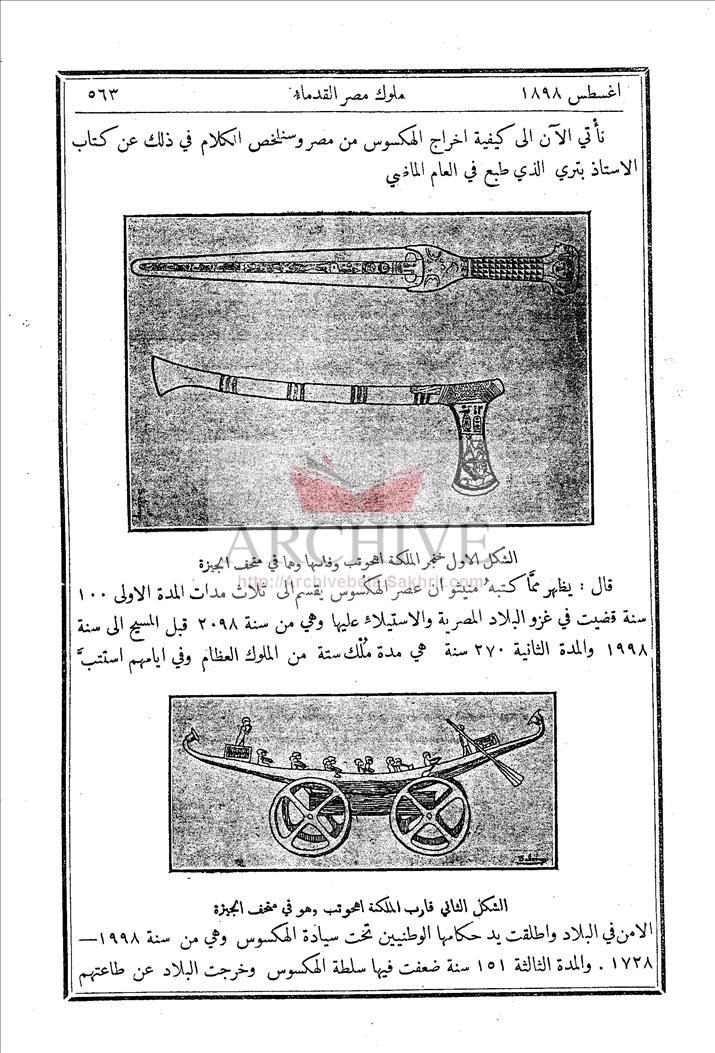 اغسطس ١٨٩٨
ملوك مصر القدماء
٥٦٣
نأتي الآن الى كيفية اخراج الهكسوس من مصر وسنلخص الكلام في ذلك عن كتاب
الاستاذ بتري الذي طبع في العام الماضي
ARCHIVE
الشكل الاول خنجر الملكة اهحوتب وفاسها وها في متحف الجيزة
http://Archivebeta.Sakhrit.com
قال : يظهر ممَّا كتبهُ منيثو ان عصر الهكسوس يقسم الى ثلاث مدات المدة الاولى ١٠٠
سنة قضيت في غزو البلاد المصرية والاستيلاءِ عليها وهي من سنة ٢٠٩٨ قبل المسيح الى سنة
١٩٩٨ والمدة الثانية ٢٧٠ سنة هي مدة مُلك ستة من الملوك العظام وفي ايامهم استتبَّ
الشكل الثاني قارب الملكة اهحوتب وهو في متحف الجيزة
الامن في البلاد واطلقت يد حكامها الوطنيين تحت سيادة الهكسوس وهي من سنة ١٩٩٨—
١٧٢٨ . والمدة الثالثة ١٥١ سنة ضعفت فيها سلطة الهكسوس وخرجت البلاد عن طاعتهم